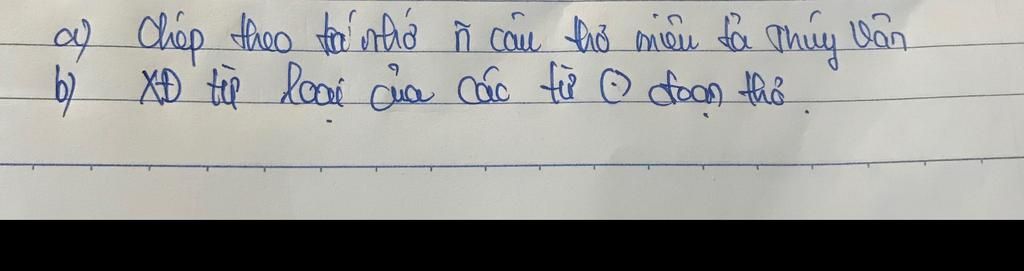 a) Chép theo trí nhớ ñ câu thơ miêu tả Thúy Vân
b) XĐ từ loại của các từ (·) đoạn thơ.